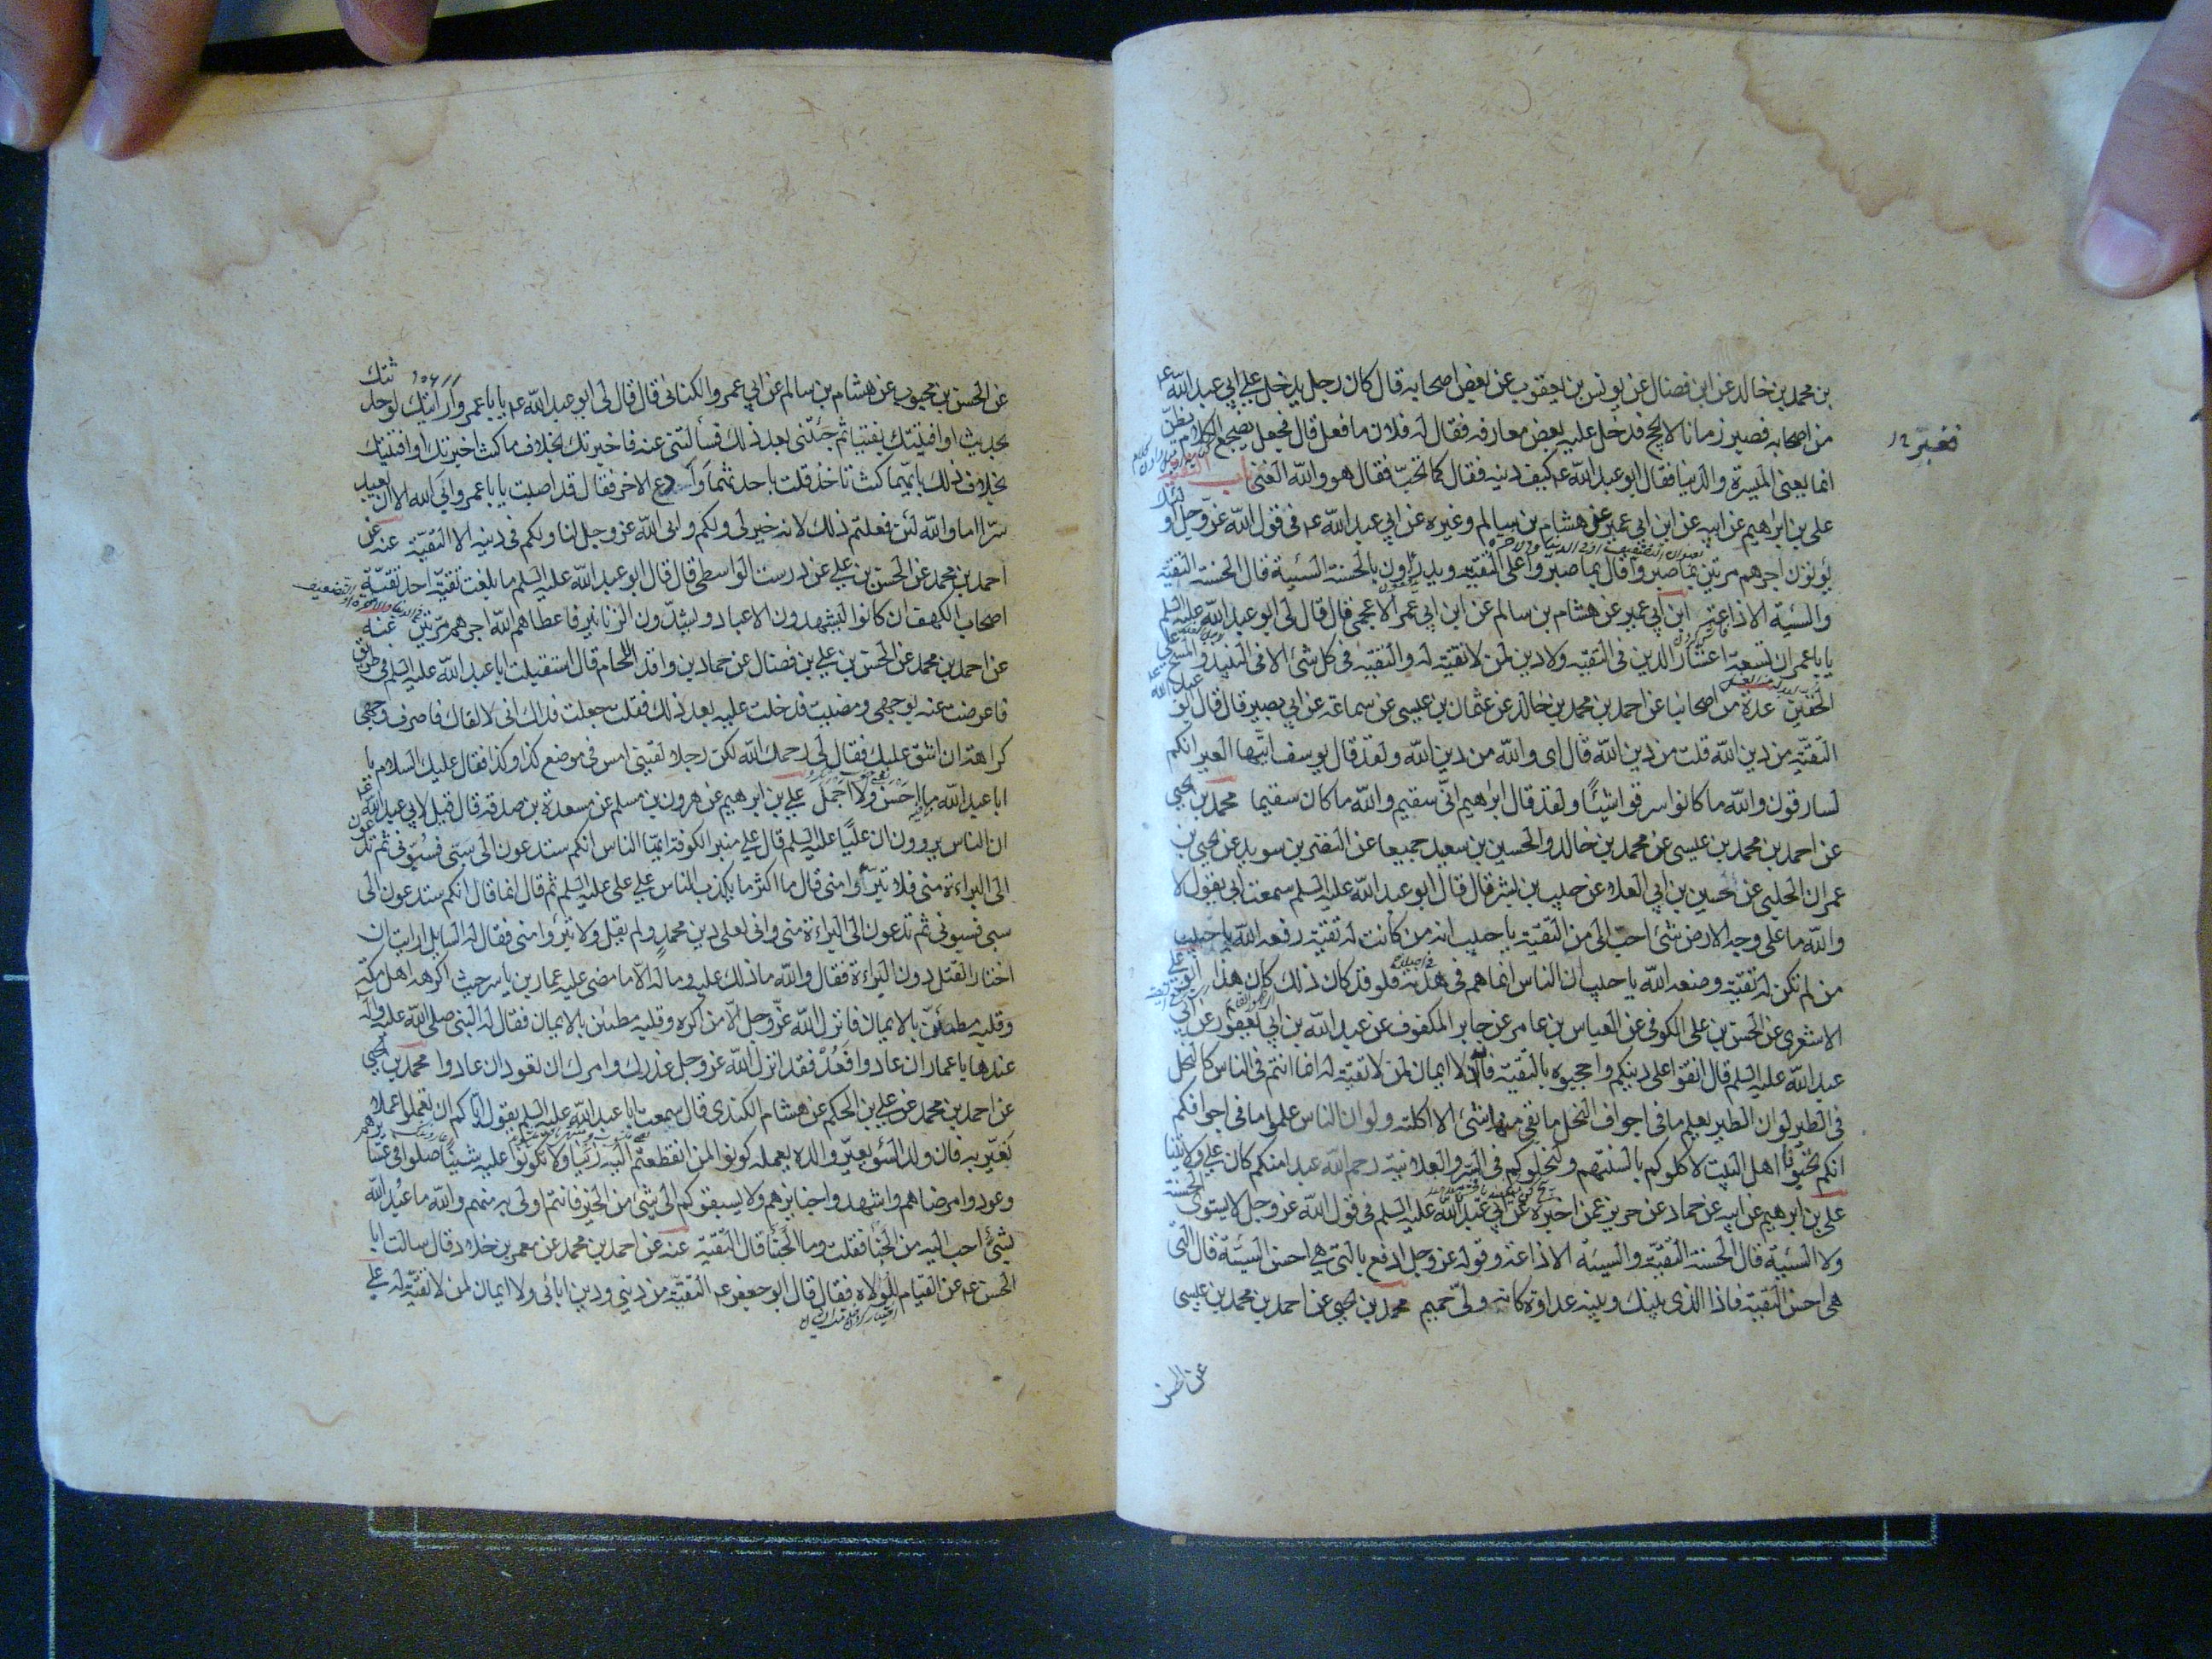 بن محمد بن خالد عن ابن فضال عن يونس بن يعقوب عن بعض اصحابه قال كان رجل يدخل على ابي عبد الله عم
من اصحابه فصبر زمانا لا يحج فدخل عليه بعض معارفه فقال له فلان ما فعل قال فجعل يضجع الكلام يظن
فغبر
انما يعنى الميسرة والدنيا فقال ابو عبد الله عم كيف دينه فقال كما تحب فقال هو والله الغنى باب التقية
على بن ابراهيم عن ابيه عن ابن ابي عمير عن هشام بن سالم وغيره عن ابي عبد الله عم فى قول الله عز وجل اولئك
يؤتون اجرهم مرتين بما صبروا قال بما صبروا على التقيه ويدرؤن بالحسنة السيئة قال الحسنة التقية
والسيئة الاذاعة ابن ابي عمير عن هشام بن سالم عن ابن ابي عمر الاعجمى قال قال لى ابو عبد الله عليه السلم
يا با عمر ان تسعة اعشار الدين فى التقيه ولا دين لمن لا تقيه له والتقيه فى كل شئ الا فى النبيذ والمسح على
الخفين عدة من اصحابنا عن احمد بن محمد بن خالد عن عثمان بن عيسى عن سماعة عن ابي بصير قال قال ابو عبد الله عم
التقية من دين الله قلت من دين الله قال اى والله من دين الله ولقد قال يوسف ايتها العير انكم
لسارقون والله ما كانوا سرقوا شيئا ولقد قال ابراهيم انى سقيم والله ما كان سقيما محمد بن يحيى
عن احمد بن محمد بن عيسى عن محمد بن خالد والحسين بن سعيد جميعا عن النضر بن سويد عن يحيى بن
عمران الحلبى عن حسين بن ابي العلاء عن حبيب بن بشر قال قال ابو عبد الله عليه السلم سمعت ابي يقول لا
والله ما على وجه الارض شئ احب الى من التقية يا حبيب انه من كانت له تقية رفعه الله يا حبيب
من لم تكن له تقية وضعه الله يا حبيب ان الناس انما هم فى هدنة فلو قد كان ذلك كان هذا ابو على
الاشعرى عن الحسن بن على الكوفى عن العباس بن عامر عن جابر المكفوف عن عبد الله بن ابي يعفور عن ابي
عبد الله عليه السلم قال اتقوا على دينكم واحجبوه بالتقية فانه لا ايمان لمن لا تقية له انما انتم فى الناس كالنحل
فى الطير لو ان الطير يعلم ما فى اجواف النحل ما بقى منها شئ الا اكلته ولو ان الناس علموا ما فى اجوافكم
انكم تحبونا اهل البيت لاكلوكم بالسنتهم ولنحلوكم فى السر والعلانية رحم الله عبدا منكم كان على ولايتنا
على بن ابرهيم عن ابيه عن حماد عن حريز عمن اخبره عن ابي عبد الله عليه السلم فى قول الله عز وجل لا يستوى الحسنة
ولا السيئة قال الحسنة التقية والسيئة الاذاعة وقوله عز وجل ادفع بالتى هي احسن السيئة قال التى
هى احسن التقية فاذا الذى بينك وبينه عداوة كانه ولى حميم محمد بن يحيى عن احمد بن محمد بن عيسى
عن الحسن
عن الحسن بن محبوب عن هشام بن سالم عن ابي عمرو الكنانى قال قال لى ابو عبد الله عم يا با عمرو ارايتك لو حدثتك
بحديث او افتيتك بفتيا ثم جئتنى بعد ذلك فسألتنى عنه فاخبرتك بخلاف ما كنت اخبرتك او افتيتك
بخلاف ذلك بايهما كنت تاخذ قلت باحدثهما وادع الاخر فقال قد اصبت يا با عمرو وابى الله الا ان يعبد
سرا اما والله لئن فعلتم ذلك لانه خير لى ولكم وابى الله عز وجل لنا ولكم فى دينه الا التقية عنه عن
احمد بن محمد عن الحسن بن على عن درست الواسطى قال قال ابو عبد الله عليه السلم ما بلغت تقية احد تقية
اصحاب الكهف ان كانوا ليشهدون الاعياد ويشدون الزنانير فاعطاهم الله اجرهم مرتين عنه
عن احمد بن محمد عن الحسن بن على بن فضال عن حماد بن واقد اللحام قال استقبلت ابا عبد الله عليه السلم فى طريق
فاعرضت عنه بوجهى ومضيت فدخلت عليه بعد ذلك فقلت جعلت فداك انى لالقاك فاصرف وجهى
كراهة ان اشق عليك فقال لى رحمك الله لكن رجلا لقينى امس فى موضع كذا وكذا فقال عليك السلام يا
ابا عبد الله ما احسن ولا اجمل على بن ابرهيم عن هرون بن مسلم عن مسعدة بن صدقه قال قيل لابي عبد الله عم
ان الناس يروون ان عليا عليه السلم قال على منبر الكوفة ايها الناس انكم ستدعون الى سبى فسبونى ثم تدعون
الى البراءة منى فلا تبرأوا منى قال ما اكثر ما يكذب الناس على على عليه السلم ثم قال انما قال انكم ستدعون الى
سبى فسبونى ثم تدعون الى البراءة منى وانى لعلى دين محمد ولم يقل ولا تبروا منى فقال له السايل ارايت ان
اختار القتل دون البراءة فقال والله ما ذلك عليه وما له الا ما مضى عليه عمار بن ياسر حيث اكرهه اهل مكة
وقلبه مطمئن بالايمان فانزل الله عز وجل الا من اكره وقلبه مطمئن بالايمان فقال له النبى صلى الله عليه وآله
عندها يا عمار ان عادوا فعد فقد انزل الله عز وجل عذرك وامرك ان تعود ان عادوا محمد بن يحيى
عن احمد بن محمد عن على بن الحكم عن هشام الكندى قال سمعت ابا عبد الله عليه السلم يقول اياكم ان تعملوا عملا
يعير به فان ولد السؤ يعير والده بعمله كونوا لمن انقطعتم اليه زينا ولا تكونوا عليه شينا صلوا فى عشايرهم
وعودوا مرضاهم واشهدوا جنايزهم ولا يسبقوكم الى شئ من الخير فانتم اولى به منهم والله ما عبد الله
بشئ احب اليه من الخبأ فقلت وما الخبأ قال التقية عنه عن احمد بن محمد عن معمر بن خلاد قال سالت ابا
الحسن عم عن القيام للولاة فقال قال ابو جعفر عم التقية من دينى ودين ابائى ولا ايمان لمن لا تقية له على